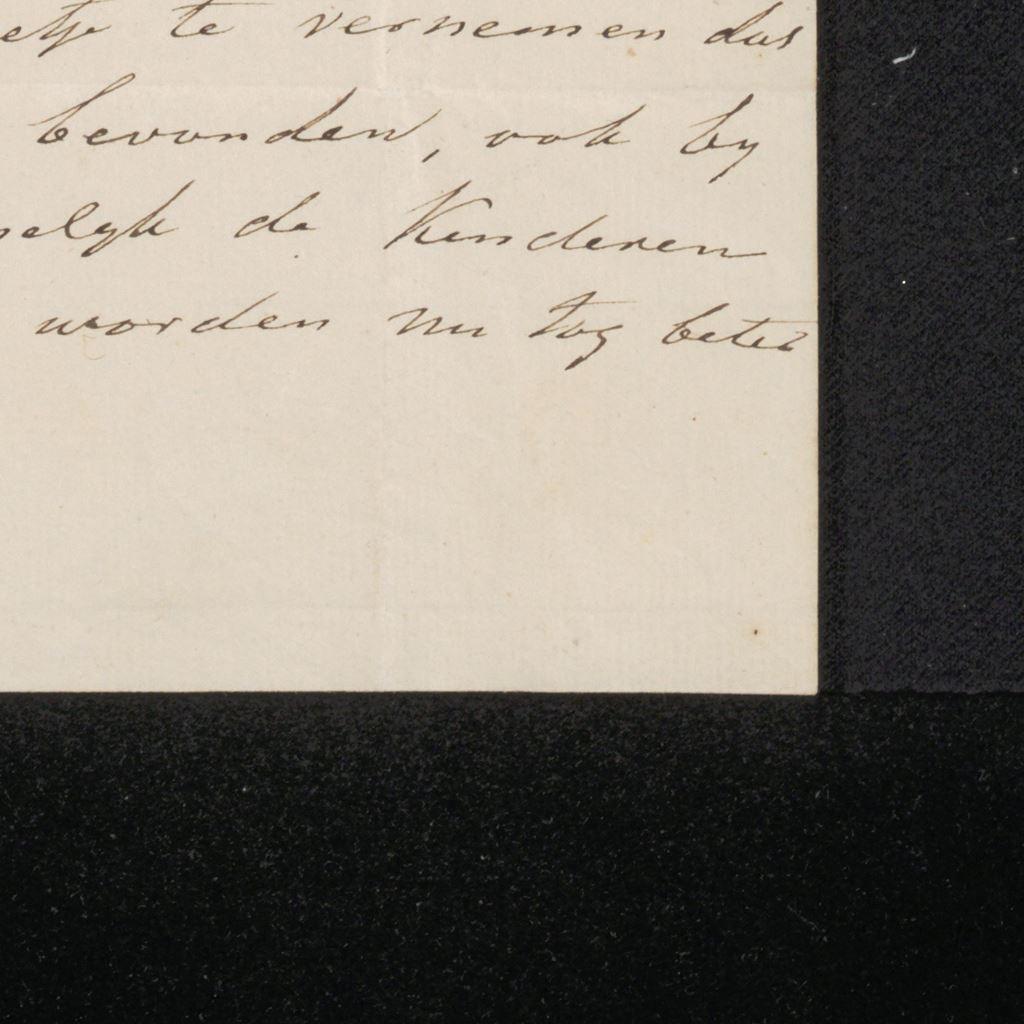 etje te vernemen dus
bevonden, ook by
nelyk de Kinderen
worden nu tog beter